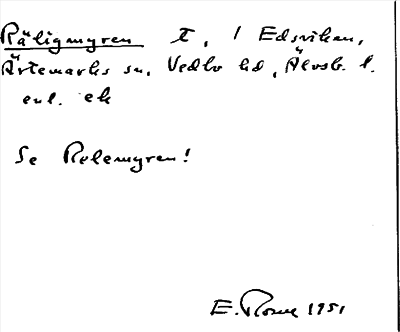 Räligmyren T, / Edsviken,
Ärtemarks sn, Vedbo hd, Älvsb. l.
enl. ek
Se Rolemyren!
E. Rosell 1951